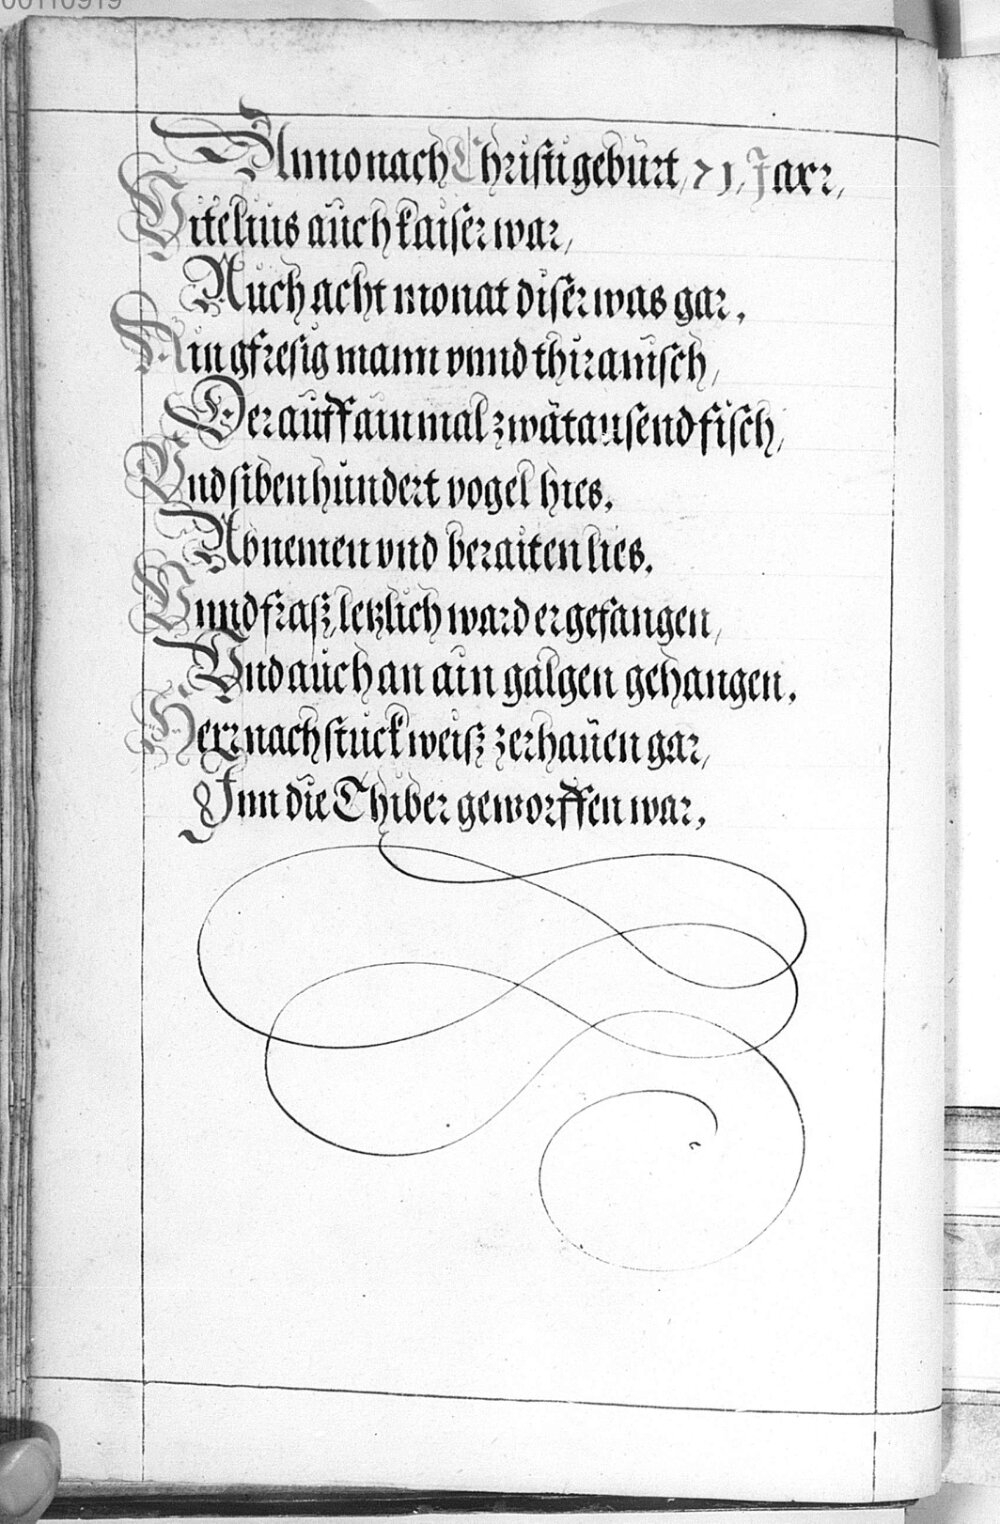 00110919
Anno nach Christi gebürt, 71, Jaxr,
Vitelius aüch kaiser war,
Auch acht monat diser was gar,
Ain gfresig mann vnnd thiranisch,
Der aüff ain mal zwätausend fisch,
Vnd siben hündert vogel hies,
Abnemen vnd beraiten lies,
Vnnd fraß, letzlich ward er gefangen,
Vnd aüch an ain galgen gehangen,
Herrnach stuckweiß zerhaüen gar,
Inn die Thiber geworffen war,